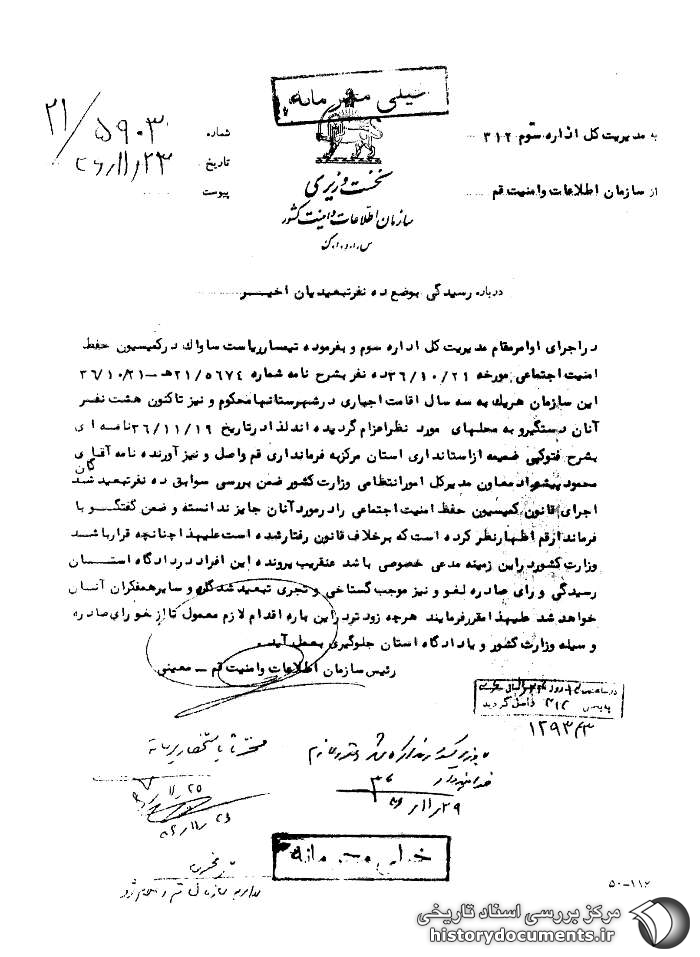 خیلی محرمانه
به مدیریت کل اداره سوم ۳۱۲
از سازمان اطلاعات و امنیت قم
نخست وزیری
سازمان اطلاعات و امنیت کشور
س.ا.و.ا.ک
شماره ۲۱/۵۹۰۳
تاریخ ۳۶/۱۱/۲۳
پیوست
درباره رسیدگی بوضع ده نفر تبعیدیان اخیر
در اجرای اوامر مقام مدیریت کل اداره سوم و بفرموده تیمسار ریاست ساواک در کمیسیون حفظ
امنیت اجتماعی مورخه ۳۶/۱۰/۲۱ ده نفر بشرح نامه شماره ۲۱/۵۶۷۴ هـ - ۳۶/۱۰/۲۱
این سازمان هریک به سه سال اقامت اجباری در شهرستانها محکوم و نیز تاکنون هشت نفر
آنان دستگیر و به محلهای مورد نظر اعزام گردیده اند لذا در تاریخ ۳۶/۱۱/۱۹ نامه ای
بشرح فتوکپی ضمیمه از استانداری استان مرکز به فرمانداری قم واصل و نیز آورنده نامه آقای
محمود پیشوا معاون مدیرکل امور انتظامی وزارت کشور ضمن بررسی سوابق ده نفر تبعید شدگان
اجرای قانون کمیسیون حفظ امنیت اجتماعی را در مورد آنان جایز ندانسته و ضمن گفتگو با
فرماندار قم اظهار نظر کرده است که برخلاف قانون رفتار شده است علیهذا چنانچه قرار باشد
وزارت کشور در این زمینه مدعی خصوصی باشد عنقریب پرونده این افراد در دادگاه استان
رسیدگی و رای صادره لغو و نیز موجب گستاخی و تجری تبعید شدگان و سایر همفکران آنان
خواهد شد علیهذا مقرر فرمایند هرچه زودتر در این باره اقدام لازم معمول تا از لغو رای صادره
وسیله وزارت کشور و یا دادگاه استان جلوگیری بعمل آید.
رئیس سازمان اطلاعات و امنیت قم - معینی
۳۱۲ واصل گردید
۱۲۹۳/۳
۲۹/۱۱/۳۶
۲۵/۱۱
خیلی محرمانه
۵۰-۱۱۲
مرکز بررسی اسناد تاریخی
historydocuments.ir